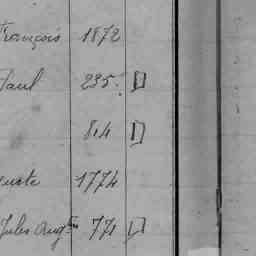 François 1872
Paul 235.
814
guste 1774
Jules Aug.tin 774